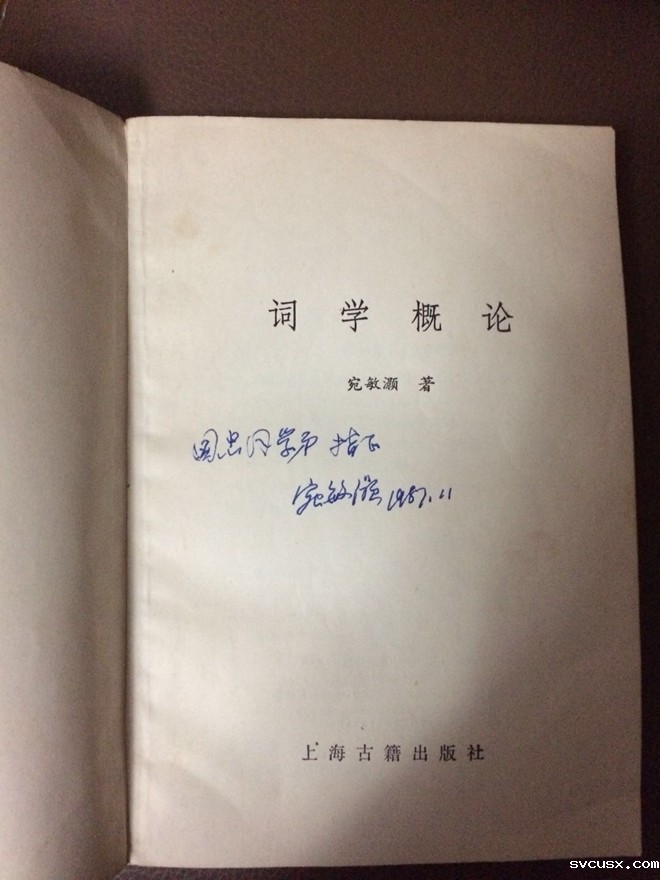 词学概论
宛敏灏 著
国忠同学弟 指正
宛敏灏 1987.11
上海古籍出版社
svcusx.com